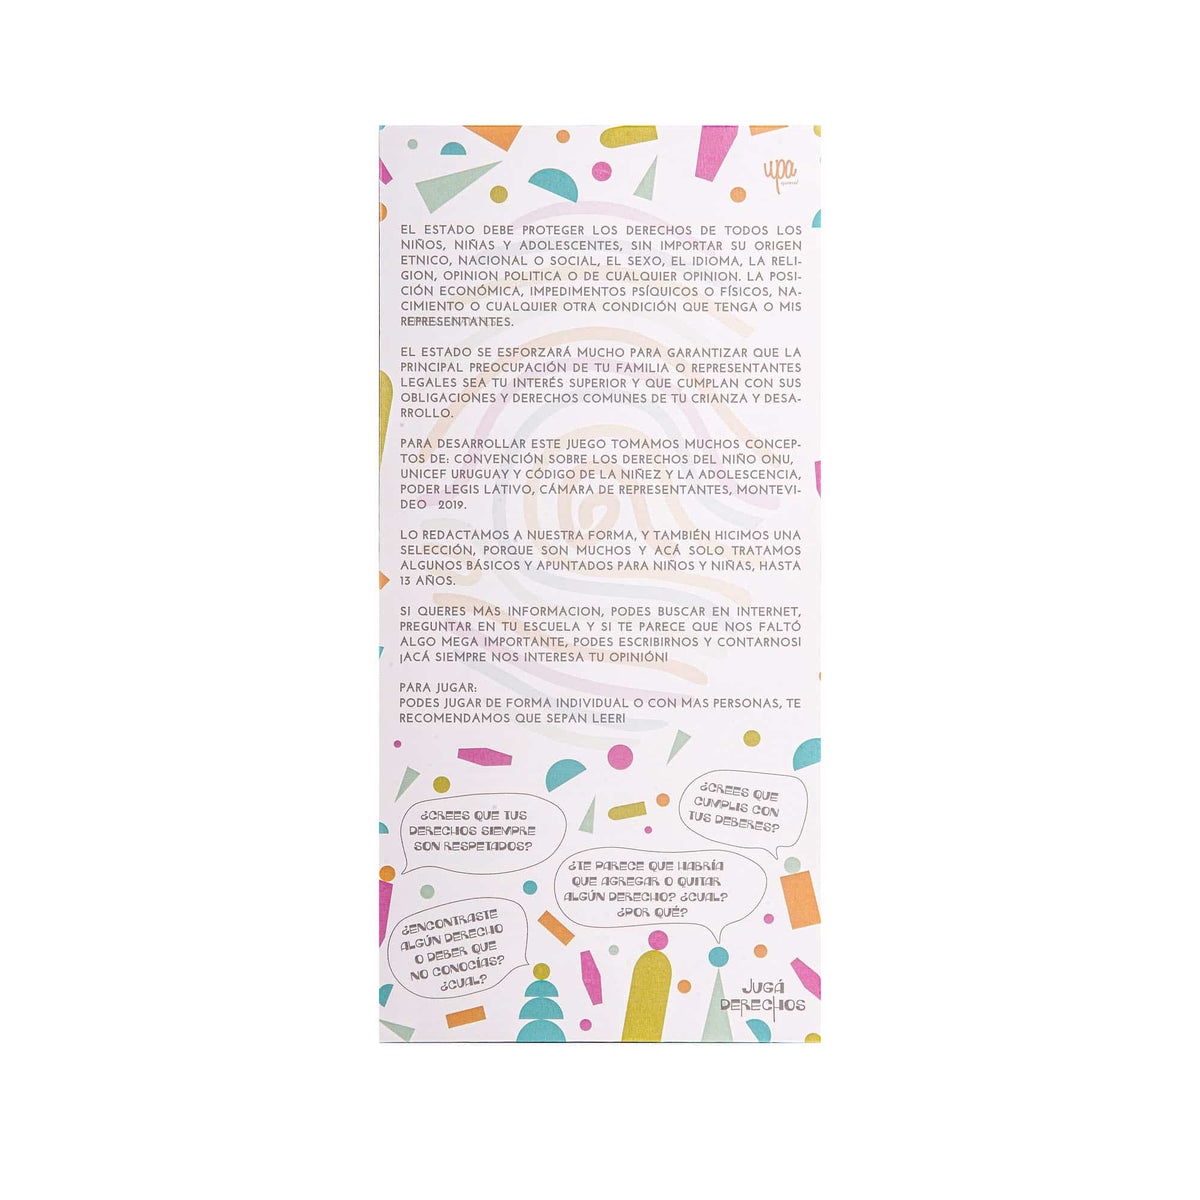 upa
EL ESTADO DEBE PROTEGER LOS DERECHOS DE TODOS LOS
NIÑOS, NIÑAS Y ADOLESCENTES, SIN IMPORTAR SU ORIGEN
ETNICO, NACIONAL O SOCIAL, EL SEXO, EL IDIOMA, LA RELI-
GION, OPINION POLITICA O DE CUALQUIER OPINION. LA POSI-
CIÓN ECONÓMICA, IMPEDIMENTOS PSÍQUICOS O FÍSICOS, NA-
CIMIENTO O CUALQUIER OTRA CONDICIÓN QUE TENGA O MIS
REPRESENTANTES.
EL ESTADO SE ESFORZARÁ MUCHO PARA GARANTIZAR QUE LA
PRINCIPAL PREOCUPACIÓN DE TU FAMILIA O REPRESENTANTES
LEGALES SEA TU INTERÉS SUPERIOR Y QUE CUMPLAN CON SUS
OBLIGACIONES Y DERECHOS COMUNES DE TU CRIANZA Y DESA-
RROLLO.
PARA DESARROLLAR ESTE JUEGO TOMAMOS MUCHOS CONCEP-
TOS DE: CONVENCIÓN SOBRE LOS DERECHOS DEL NIÑO ONU,
UNICEF URUGUAY Y CÓDIGO DE LA NIÑEZ Y LA ADOLESCENCIA,
PODER LEGIS LATIVO, CÁMARA DE REPRESENTANTES, MONTEVI-
DEO 2019.
LO REDACTAMOS A NUESTRA FORMA, Y TAMBIÉN HICIMOS UNA
SELECCIÓN, PORQUE SON MUCHOS Y ACÁ SOLO TRATAMOS
ALGUNOS BÁSICOS Y APUNTADOS PARA NIÑOS Y NIÑAS, HASTA
13 AÑOS.
SI QUERES MAS INFORMACION, PODES BUSCAR EN INTERNET,
PREGUNTAR EN TU ESCUELA Y SI TE PARECE QUE NOS FALTÓ
ALGO MEGA IMPORTANTE, PODES ESCRIBIRNOS Y CONTARNOS!
¡ACÁ SIEMPRE NOS INTERESA TU OPINIÓN!
PARA JUGAR:
PODES JUGAR DE FORMA INDIVIDUAL O CON MAS PERSONAS, TE
RECOMENDAMOS QUE SEPAN LEER!
¿CREES QUE
CUMPLIS CON
TUS DEBERES?
¿CREES QUE TUS
DERECHOS SIEMPRE
SON RESPETADOS?
¿TE PARECE QUE HABRÍA
QUE AGREGAR O QUITAR
ALGÚN DERECHO? ¿CUAL?
¿POR QUÉ?
¿ENCONTRASTE
ALGÚN DERECHO
O DEBER QUE
NO CONOCÍAS?
¿CUAL?
JUGÁ
DERECHOS